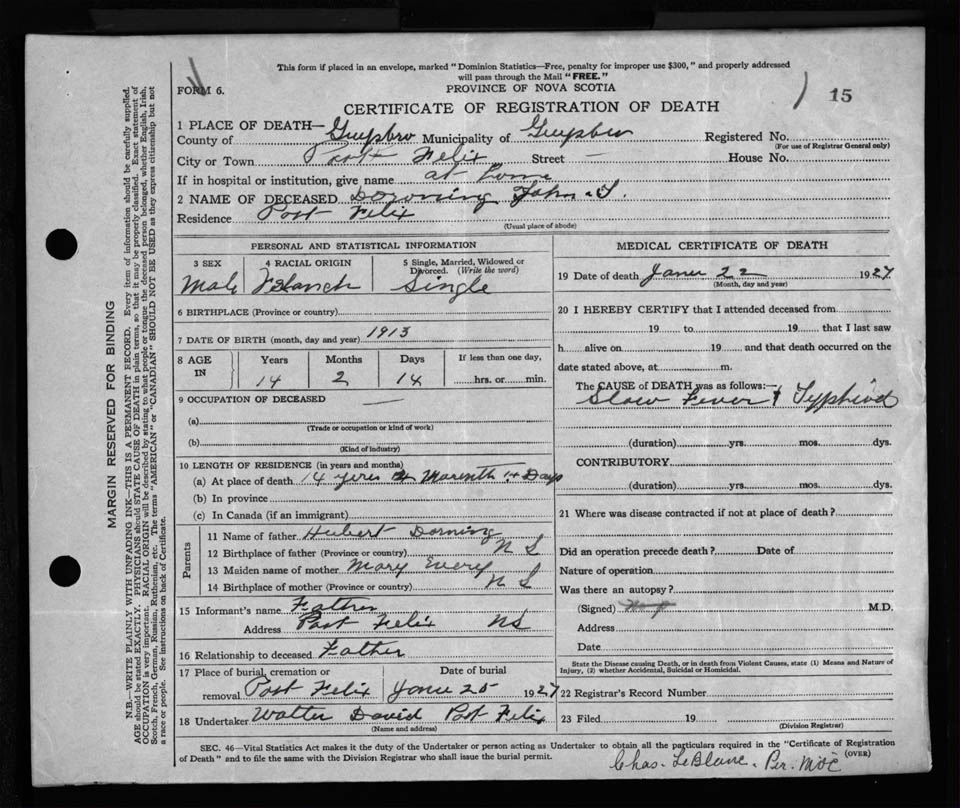 This form if placed in an envelope, marked "Dominion Statistics—Free, penalty for improper use $300," and properly addressed
will pass through the Mail "FREE."
FORM 6.
PROVINCE OF NOVA SCOTIA
15
CERTIFICATE OF REGISTRATION OF DEATH
1 PLACE OF DEATH—
County of Guysbro Municipality of Guysbro Registered No.
(For use of Registrar General only)
City or Town Port Felix Street — House No.
If in hospital or institution, give name at home
2 NAME OF DECEASED John
Residence Port Felix
(Usual place of abode)
PERSONAL AND STATISTICAL INFORMATION
3 SEX 4 RACIAL ORIGIN 5 Single, Married, Widowed or Divorced. (Write the word)
Male Single
6 BIRTHPLACE (Province or country)
7 DATE OF BIRTH (month, day and year) 1913
8 AGE IN Years Months Days If less than one day,
14 2 14 hrs. or min.
9 OCCUPATION OF DECEASED —
(a)
(Trade or occupation or kind of work)
(b)
(Kind of industry)
10 LENGTH OF RESIDENCE (in years and months)
(a) At place of death 14 yeres Days
(b) In province
(c) In Canada (if an immigrant)
Parents
11 Name of father Hubert
12 Birthplace of father (Province or country) N S
13 Maiden name of mother Mary
14 Birthplace of mother (Province or country) N S
15 Informant's name Father
Address Port Felix NS
16 Relationship to deceased Father
17 Place of burial, cremation or removal Date of burial
Port Felix Janu 25 1927
18 Undertaker Walter David Port Felix
(Name and address)
MEDICAL CERTIFICATE OF DEATH
19 Date of death Janu 22 1927
(Month, day and year)
20 I HEREBY CERTIFY that I attended deceased from
19 to 19 that I last saw
h alive on 19 and that death occurred on the
date stated above, at m.
The CAUSE of DEATH was as follows:—
Slow Fever Typhiod
(duration) yrs. mos. dys.
CONTRIBUTORY
(duration) yrs. mos. dys.
21 Where was disease contracted if not at place of death?
Did an operation precede death? Date of
Nature of operation
Was there an autopsy?
(Signed) M.D.
Address
Date
State the Disease causing Death, or in death from Violent Causes, state (1) Means and Nature of
Injury, (2) whether Accidental, Suicidal or Homicidal.
22 Registrar's Record Number
23 Filed 19
(Division Registrar)
SEC. 46—Vital Statistics Act makes it the duty of the Undertaker or person acting as Undertaker to obtain all the particulars required in the "Certificate of Registration
of Death" and to file the same with the Division Registrar who shall issue the burial permit.
(OVER)
Chas. LeBlanc. Per.
MARGIN RESERVED FOR BINDING
N.B.—WRITE PLAINLY WITH UNFADING INK—THIS IS A PERMANENT RECORD. Every item of information should be carefully supplied.
AGE should be stated EXACTLY. PHYSICIANS should STATE CAUSE OF DEATH in plain terms, so that it may be properly classified. Exact statement of
OCCUPATION is very important. RACIAL ORIGIN will be described by stating to what people or tongue the deceased person belonged, whether English, Irish,
Scotch, French, German, Russian, Ruthenian, etc. The terms "AMERICAN" or "CANADIAN" SHOULD NOT BE USED as they express citizenship but not
a race or people. See instructions on back of Certificate.